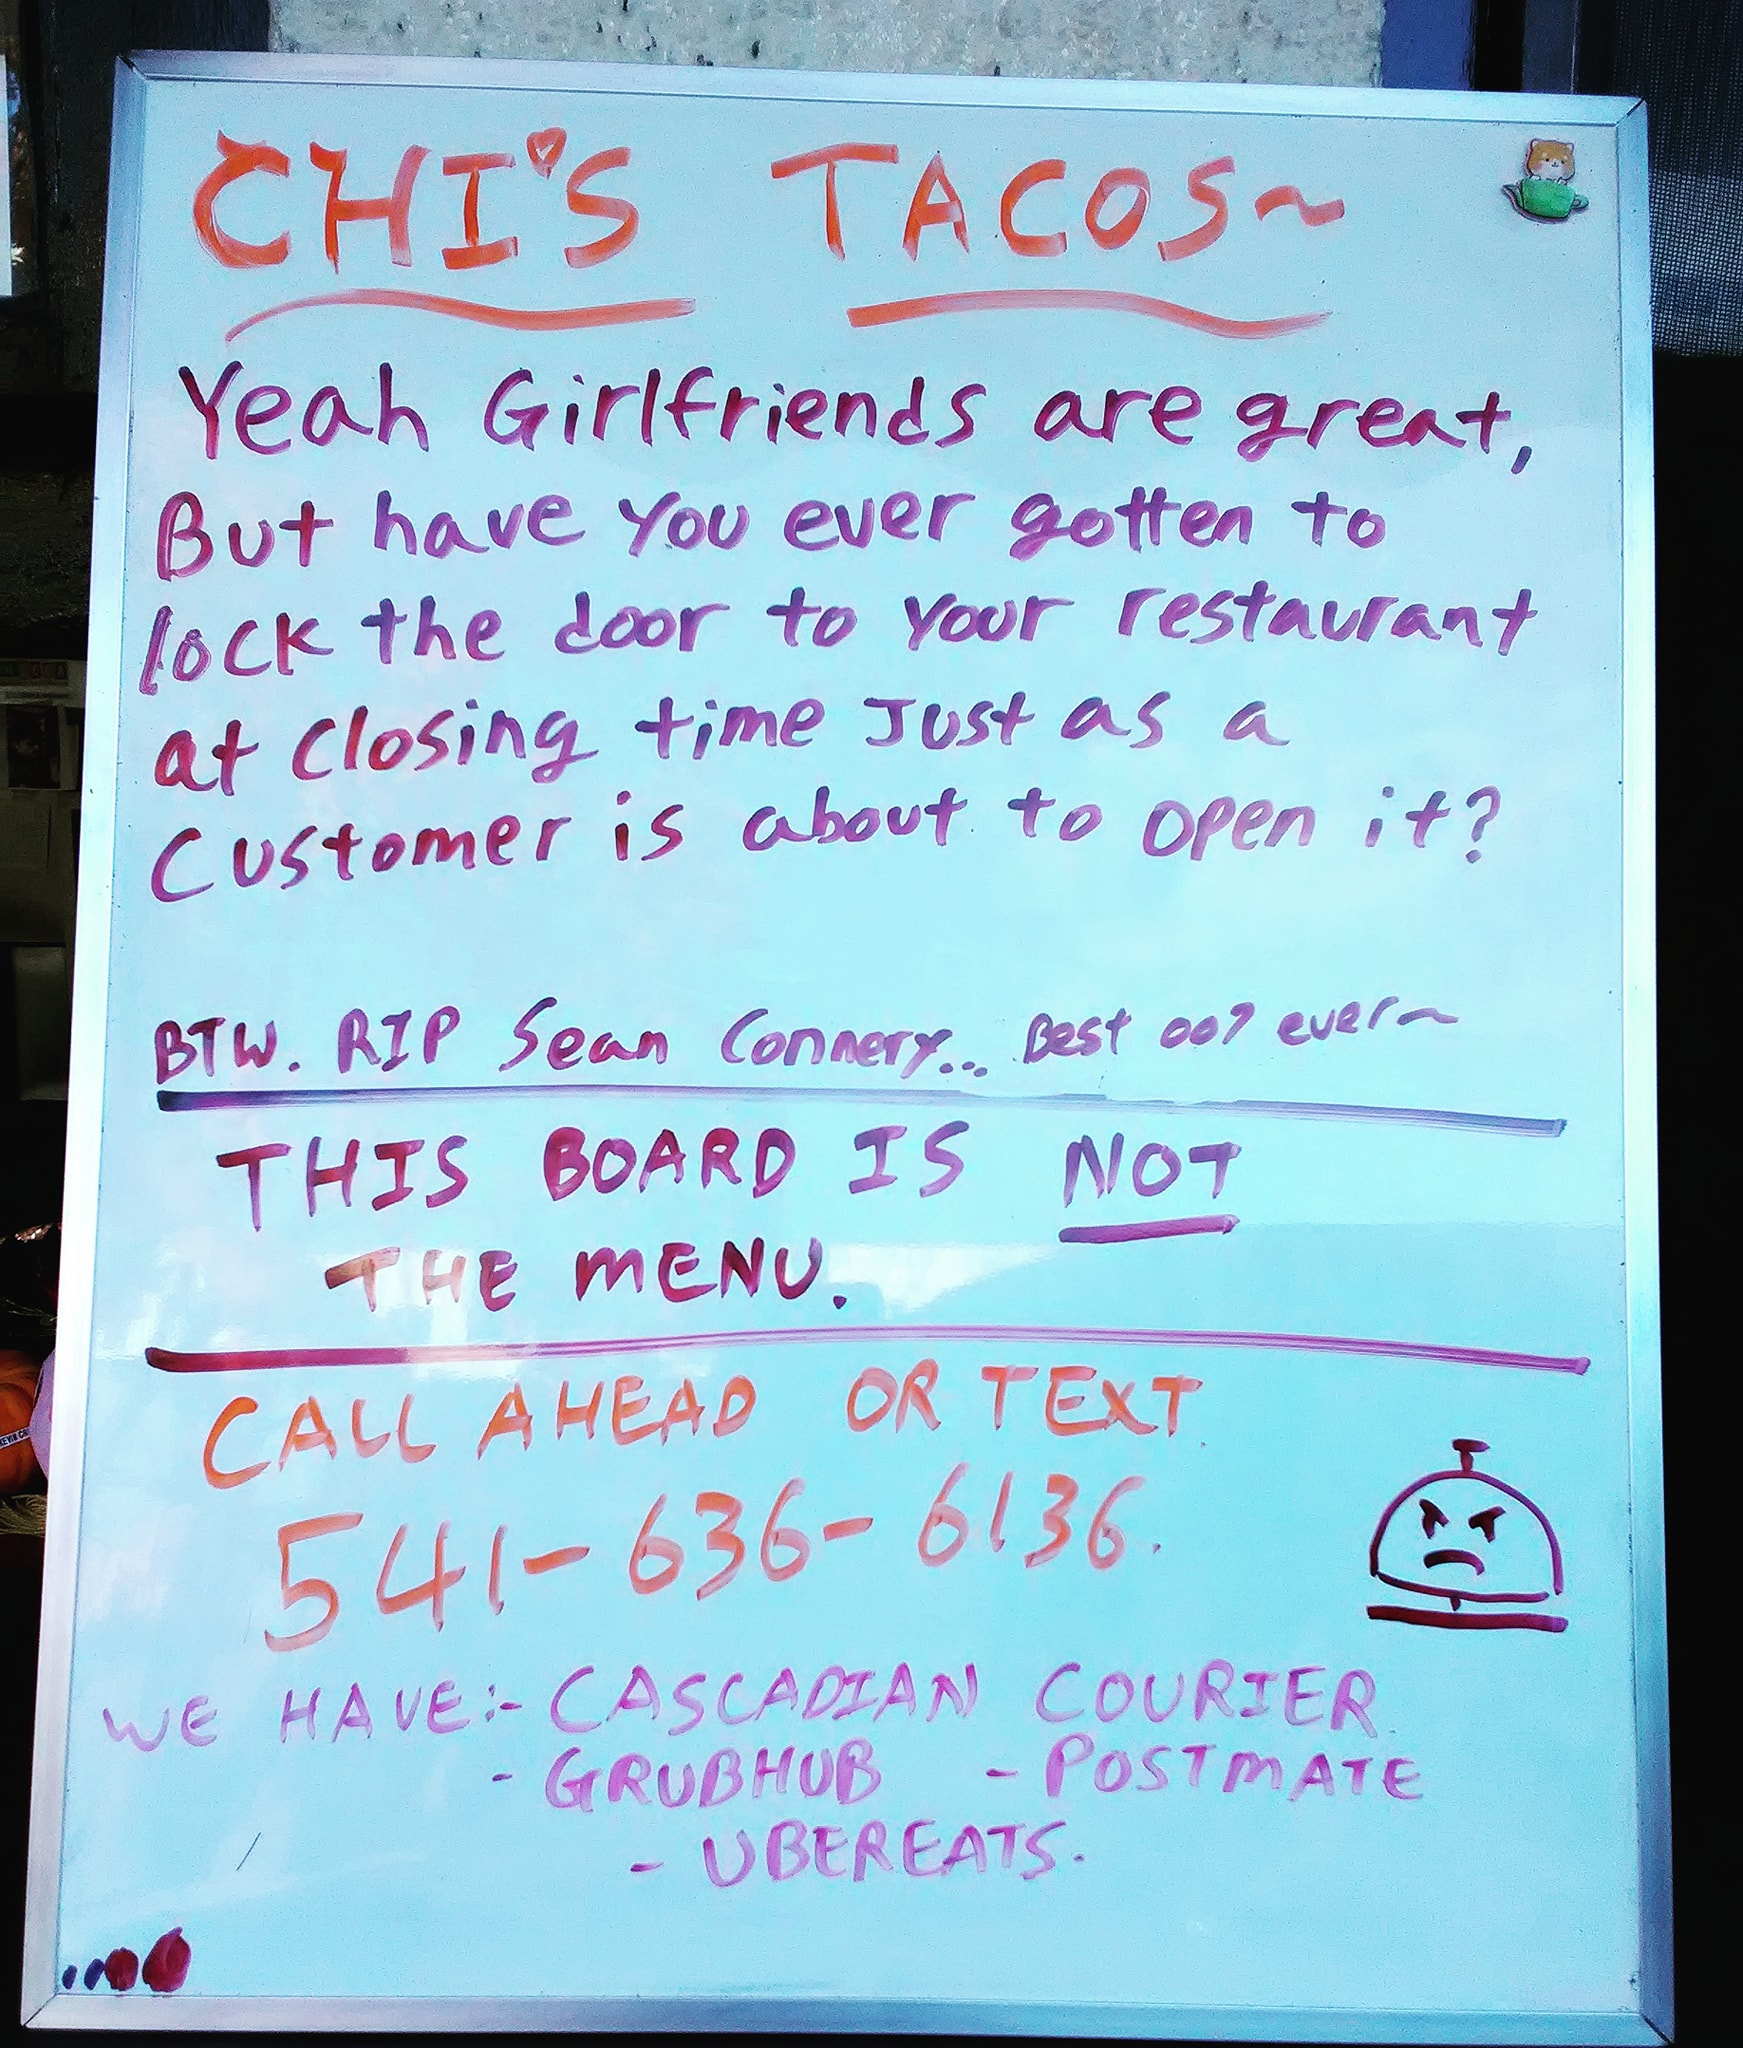 CHI'S TACOS~
Yeah Girlfriends are great,
But have you ever gotten to
lock the door to your restaurant
at closing time Just as a
Customer is about to open it?
BTW. RIP Sean Connery... Best 007 ever~
THIS BOARD IS NOT
THE MENU.
CALL AHEAD OR TEXT
541-636-6136.
WE HAVE:- CASCADIAN COURIER
- GRUBHUB - POSTMATE
- UBEREATS.